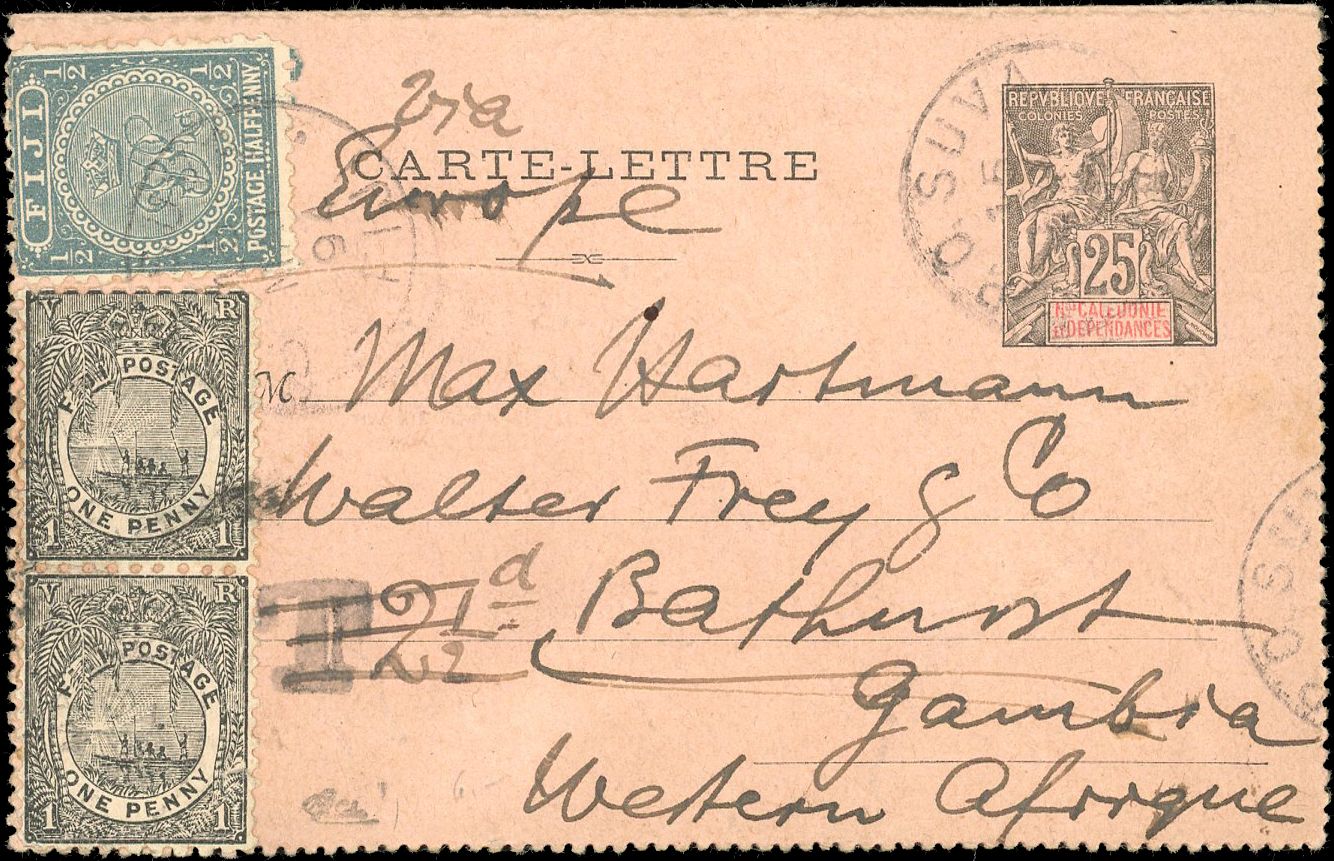 FIJI
POSTAGE HALFPENNY
1/2 1/2
1/2 1/2
via
CARTE-LETTRE
Europe
SUVA
REPVBLIQVE FRANÇAISE
COLONIES POSTES
25
Nlle CALEDONIE
ET DEPENDANCES
V R
FIJI POSTAGE
1 ONE PENNY 1
V R
FIJI POSTAGE
1 ONE PENNY 1
M. Max Hartmann
Walter Frey & Co
T 2 1/2 d Bathurst
Gambia
Western Afrique